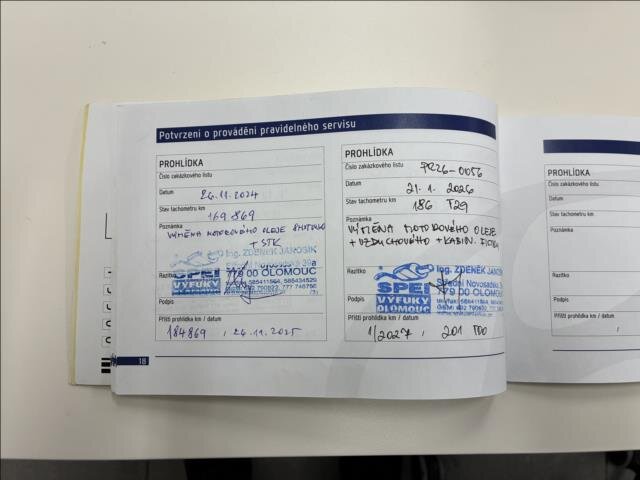 Potvrzení o provádění pravidelného servisu
PROHLÍDKA
Číslo zakázkového listu
Datum
26.11.2024
Stav tachometru km
169 869
Poznámka
VÝMĚNA MOTOROVÉHO OLEJE
+ STK
Razítko
Ing. ZDENĚK JANOŠÍK
Střední Novosadská 38a
779 00 OLOMOUC
SPEI
VÝFUKY
OLOMOUC
Podpis
Příští prohlídka km / datum
184869 , 26.11.2025
PROHLÍDKA
Číslo zakázkového listu
PR26-0056
Datum
21.1. 2026
Stav tachometru km
186 729
Poznámka
VÝMĚNA MOTOROVÉHO OLEJE
+ VZDUCHOVÉHO + KABIN. FILTRU
Razítko
Ing. ZDENĚK JANOŠÍK
Střední Novosadská
779 00 OLOMOUC
SPEI
VÝFUKY
OLOMOUC
Podpis
Příští prohlídka km / datum
1/2027 , 201 700
18
PROHLÍDKA
Číslo zakázkového listu
Datum
Stav tachometru km
Poznámka
Razítko
Podpis
Příští prohlídka km / datum